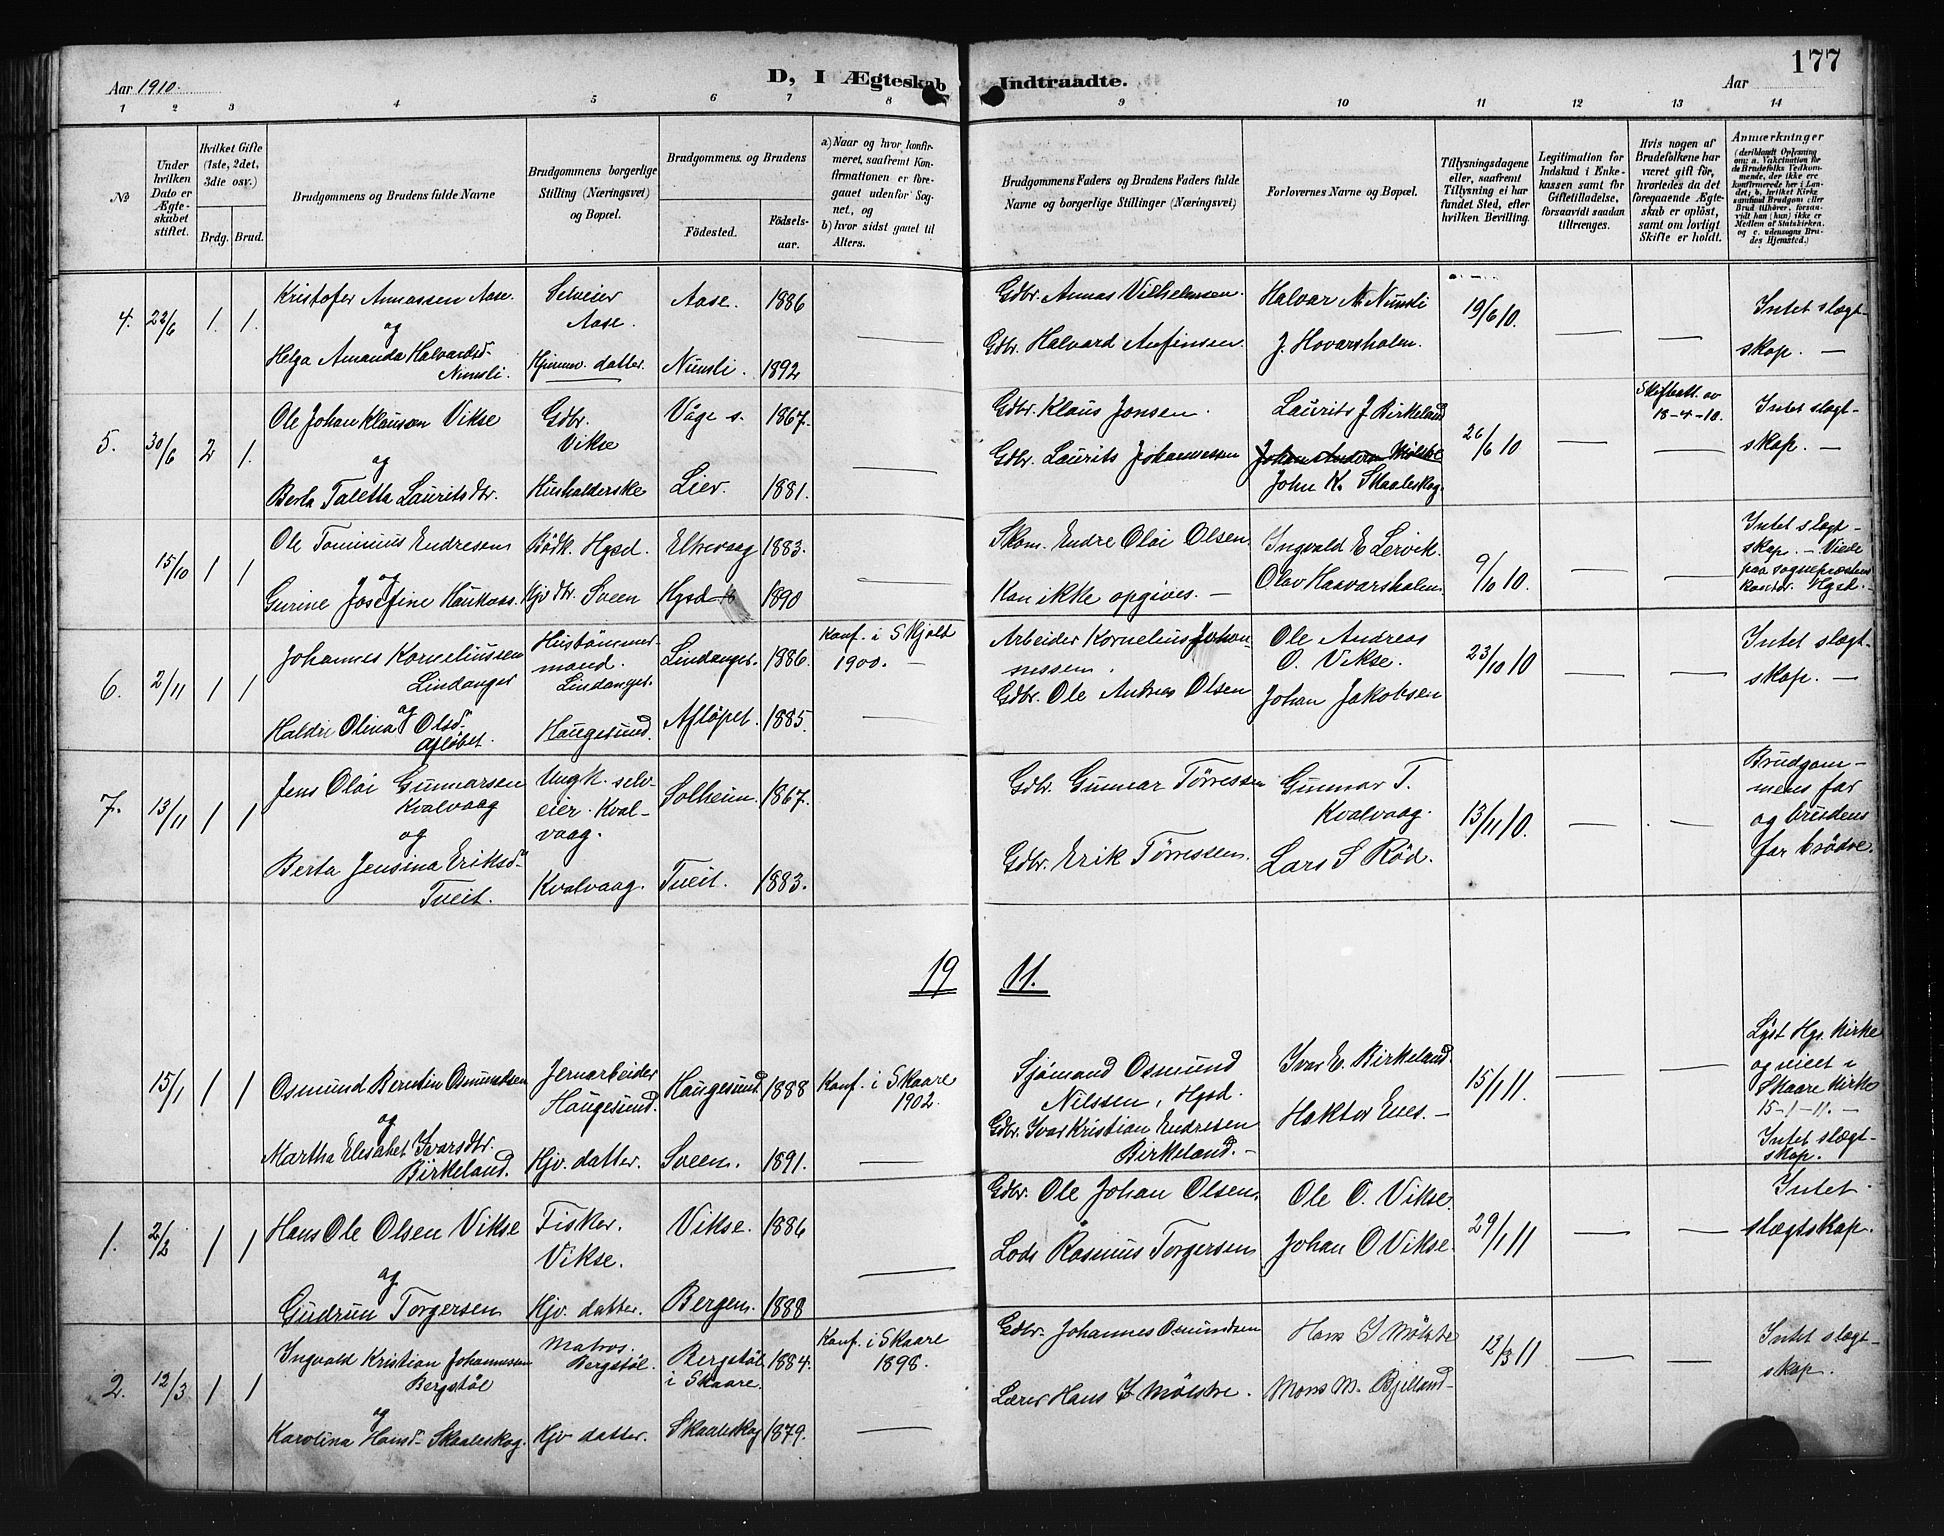 177
Aar 1910.
D, I Ægteskab Indtraadte.
Aar
1 2 3 4 5 6 7 8 9 10 11 12 13 14
№
Under hvilken Dato er Ægteskabet stiftet.
Hvilket Gifte (1ste, 2det, 3die osv.)
Brdg. Brud.
Brudgommens og Brudens fulde Navne
Brudgommens borgerlige Stilling (Næringsvei) og Bopæl.
Brudgommens og Brudens
Fødested.
Fødselsaar.
a) Naar og hvor konfirmeret, saafremt Konfirmationen er foregaaet udenfor Sognet, og
b) hvor sidst gaaet til Alters.
Brudgommens Faders og Brudens Faders fulde Navne og borgerlige Stillinger (Næringsvei)
Forlovernes Navne og Bopæl.
Tillysningsdagene eller, saafremt Tillysning ei har fundet Sted, efter hvilken Bevilling.
Legitimation for Indskud i Enkekassen samt for Giftetilladelse, forsaavidt saadan tiltrænges.
Hvis nogen af Brudefolkene har været gift før, hvorledes da det foregaaende Ægteskab er opløst, samt om lovligt Skifte er holdt.
Anmærkninger
4. 22/6 1. 1.
Kristofer Annassen Aase.
og
Helga Amanda Halvardsd.
Numsli.
Selveier
Aase.
Hjemmev. datter.
Aase. 1886
Numsli. 1892
Gdbr. Annas Vilhelmsen.
Gdbr. Halvard Anfinsen.
Halvar A. Numsli
J. Hovarsholm.
19/6 10.
Intet slægt-
skap. —
5. 30/6 2 1.
Ole Johan Klausen Vikse
og
Berta Taletta Lauritsdtr.
Gdbr.
Vikse
Husholderske
Våge s. 1867.
Liev. 1881.
Gdbr. Klaus Jonsen.
Gdbr. Laurits Johannessen
Laurits J. Birkeland
John K. Skaaleskog.
26/6 10
Skifteatt. av
18-4-10.
Intet slægt-
skap. —
15/10 1 1
Ole Tominius Endresen
og
Gurine Josefine Haukaas.
Bødk. Hgsd.
Hjv. dtr. Sveen
Elvevaag 1883.
Hgsd 1890
Skom. Endre Olai Olsen
Kan ikke opgives. —
Ingvald E Lervik.
Olav Haavarsholm
9/10 10.
Intet slægt-
skap. — Viede
paa sogneprestens
kontor. Hgsd.
6. 2/11 1 1
Johannes Korneliussen
Lindanger
og
Haldri Olina Olsd.
Afløbet.
Hustømmer-
mand.
Lindanger.
Haugesund.
Lindanger. 1886.
Afløpet. 1885.
Konf. i Skjold
1900. —
Arbeider Kornelius Johan-
nessen.
Gdbr. Ole Andreas Olsen
Ole Andreas
O. Vikse.
Johan Jakobsen
23/10 10
Intet slægt-
skap. —
7. 13/11 1 1
Jens Olai Gunnarsen
Kvalvaag
og
Berta Jensina Eriksd.
Tveit.
Ungk. selv-
eier. Kval-
vaag.
Kvalvaag.
Solheim. 1867.
Tveit. 1883.
Gdbr. Gunnar Tørressen
Gdbr. Erik Tørressen.
Gunnar T.
Kvalvaag.
Lars S Rød.
13/11 10.
Brudgom-
mens far
og brudens
far brødre.
19 11.
15/1 1 1
Osmund Berntin Osmundsen
og
Martha Elisabet Ivarsdtr.
Birkeland.
Jernarbeider
Haugesund.
Hjv. datter.
Haugesund. 1888
Sveen. 1891.
Konf. i Skaare
1902.
Sjømand Osmund
Nilssen, Hgsd.
Gdbr. Ivar Kristian Endresen
Birkeland. —
Ivar E. Birkeland.
Haktor Enes. —
15/1 11.
Lyst Hgs. Kirke
og viet i
Skaare Kirke
15-1-11. —
Intet slægt-
skap.
1. 2/2 1 1
Hans Ole Olsen Vikse
og
Gudrun Torgersen
Fisker.
Vikse.
Hjv. datter.
Vikse. 1886
Bergen. 1888
Gdbr. Ole Johan Olsen.
Lods Rasmus Torgersen
Ole O. Vikse.
Johan O Vikse.
29/1 11
Intet
slægtskap.
2. 12/3 1 1
Ingvald Kristian Johannessen
Bergstøl
og
Karolina Hansd. Skaaleskog.
Matros.
Bergstøl.
Hjv datter.
Bergstøl 1884.
i Skaare.
Skaaleskog 1879.
Konf. i Skaare
1898.
Gdbr. Johannes Osmundsen
Lærer Hans J Mølstre.
Hans J Mølstre
Mons M. Bjelland
12/3 11
Intet slægt-
skap.